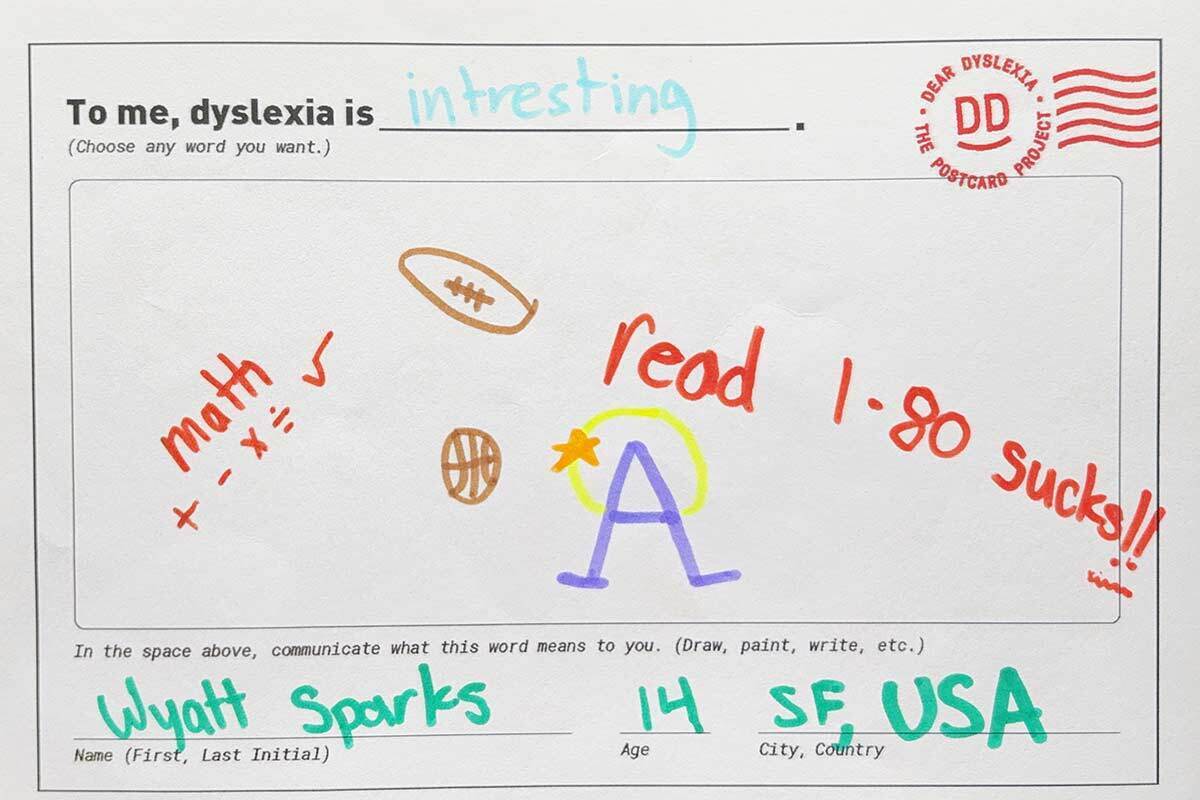 To me, dyslexia is intresting.
(Choose any word you want.)
• DEAR DYSLEXIA •
THE POSTCARD PROJECT
DD
read 1-80 sucks!!
math ✓
+ - x ÷
A
In the space above, communicate what this word means to you. (Draw, paint, write, etc.)
Wyatt Sparks 14 SF, USA
Name (First, Last Initial) Age City, Country